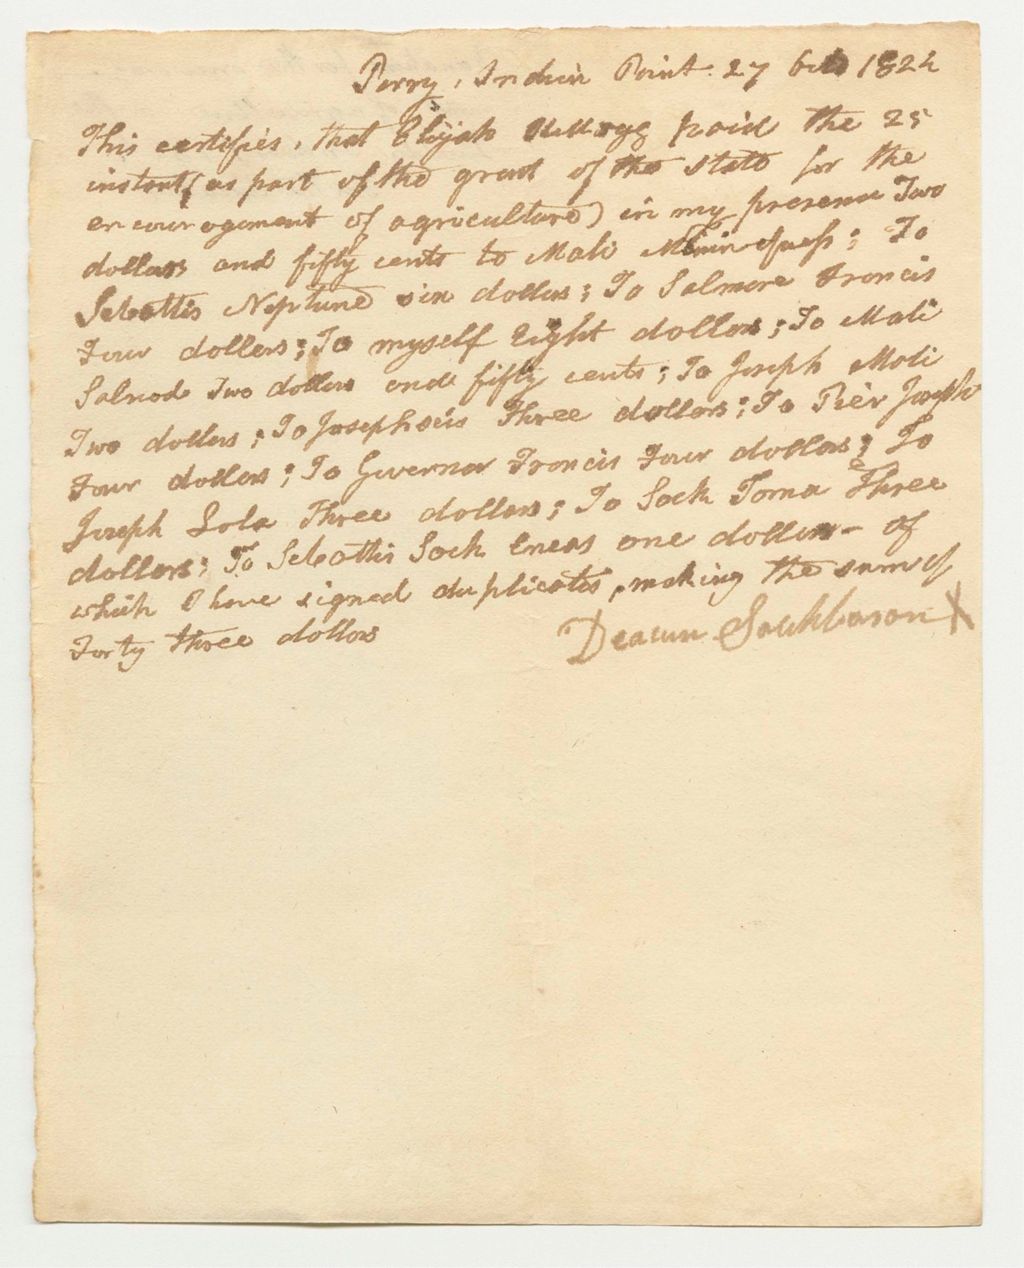 Perry, Indian Point. 27 Oct 1824
This certifies, that Elijah Kellogg paid the 25
instant (as part of the grant of the state for the
encouragement of agriculture) in my presence Two
dollars and fifty cents to Mali ; To
Sebattis Neptune six dollars; To Salmore Francis
Four dollers; To myself Eight dollars; To Mali
Salnod Two dollars and fifty cents; To Joseph Mali
Two dollars; To Josephsis Three dollars; To Pier Joseph
Four dollars; To Guvernor Francis Four dollars; To
Joseph Lola Three dollars; To Sock Toma Three
dollars; To Sebattis Sock Eneas one dollar - of
which I have signed duplicates, making the sum of
Forty three dollars
Deacun Sockbason X